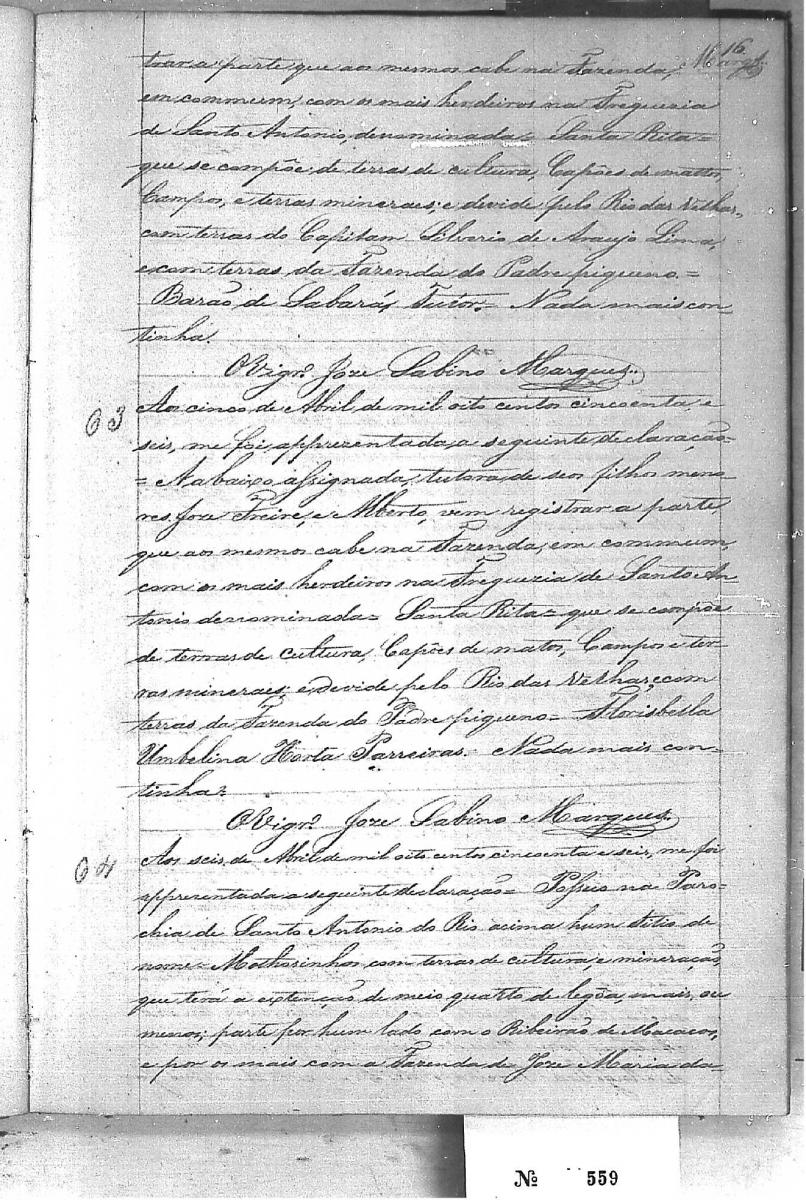 16
Marqs
trar a parte que aos mesmos cabe na Fazenda,
em commum, com os mais herdeiros na Freguezia
de Santo Antonio, denominada = Santa Rita =
que se compõe de terras de cultura, Capões de mattos,
Campos, e terras mineraes; e devide pelo Rio das Velhas,
com terras do Capitam Silverio de Araujo Lima,
e com terras da Fazenda do Padre piqueno. =
Barão de Sabará, Tutor. = Nada mais con-
tinha.
O Vigrº. Joze Sabino Marques.
63
Aos cinco de Abril de mil oito centos cincoenta e
seis, me foi apprezentada a seguinte declaração =
= A abaixo assignada, tutora de seos filhos meno-
res, Joze Freire, e Alberto, vem registrar a parte,
que aos mesmos cabe na Fazenda, em commum,
com os mais herdeiros na Freguezia de Santo An
tonio denominada = Santa Rita = que se compõe
de terras de cultura, Capões de matos, Campos e ter-
ras mineraes; e devide pelo Rio das Velhas, e com
terras da Fazenda do Padre piqueno = Florisbella
Umbelina Horta Parreiras. = Nada mais con-
tinha =
O Vigrº. Joze Sabino Marques.
64
Aos seis de Abril de mil oito centos cincoenta e seis, me foi
apprezentada a seguinte declaração = Posseio na Paro-
chia de Santo Antonio do Rio acima hum Sitio de
nome = Mothosinhos com terras de cultura, e mineração,
que terá a extenção de meio quarto de legôa, mais, ou
menos; parte por hum lado com o Ribeirão de Macacos,
e por os mais com a Fazenda de Joze Maria da-
Nº 559